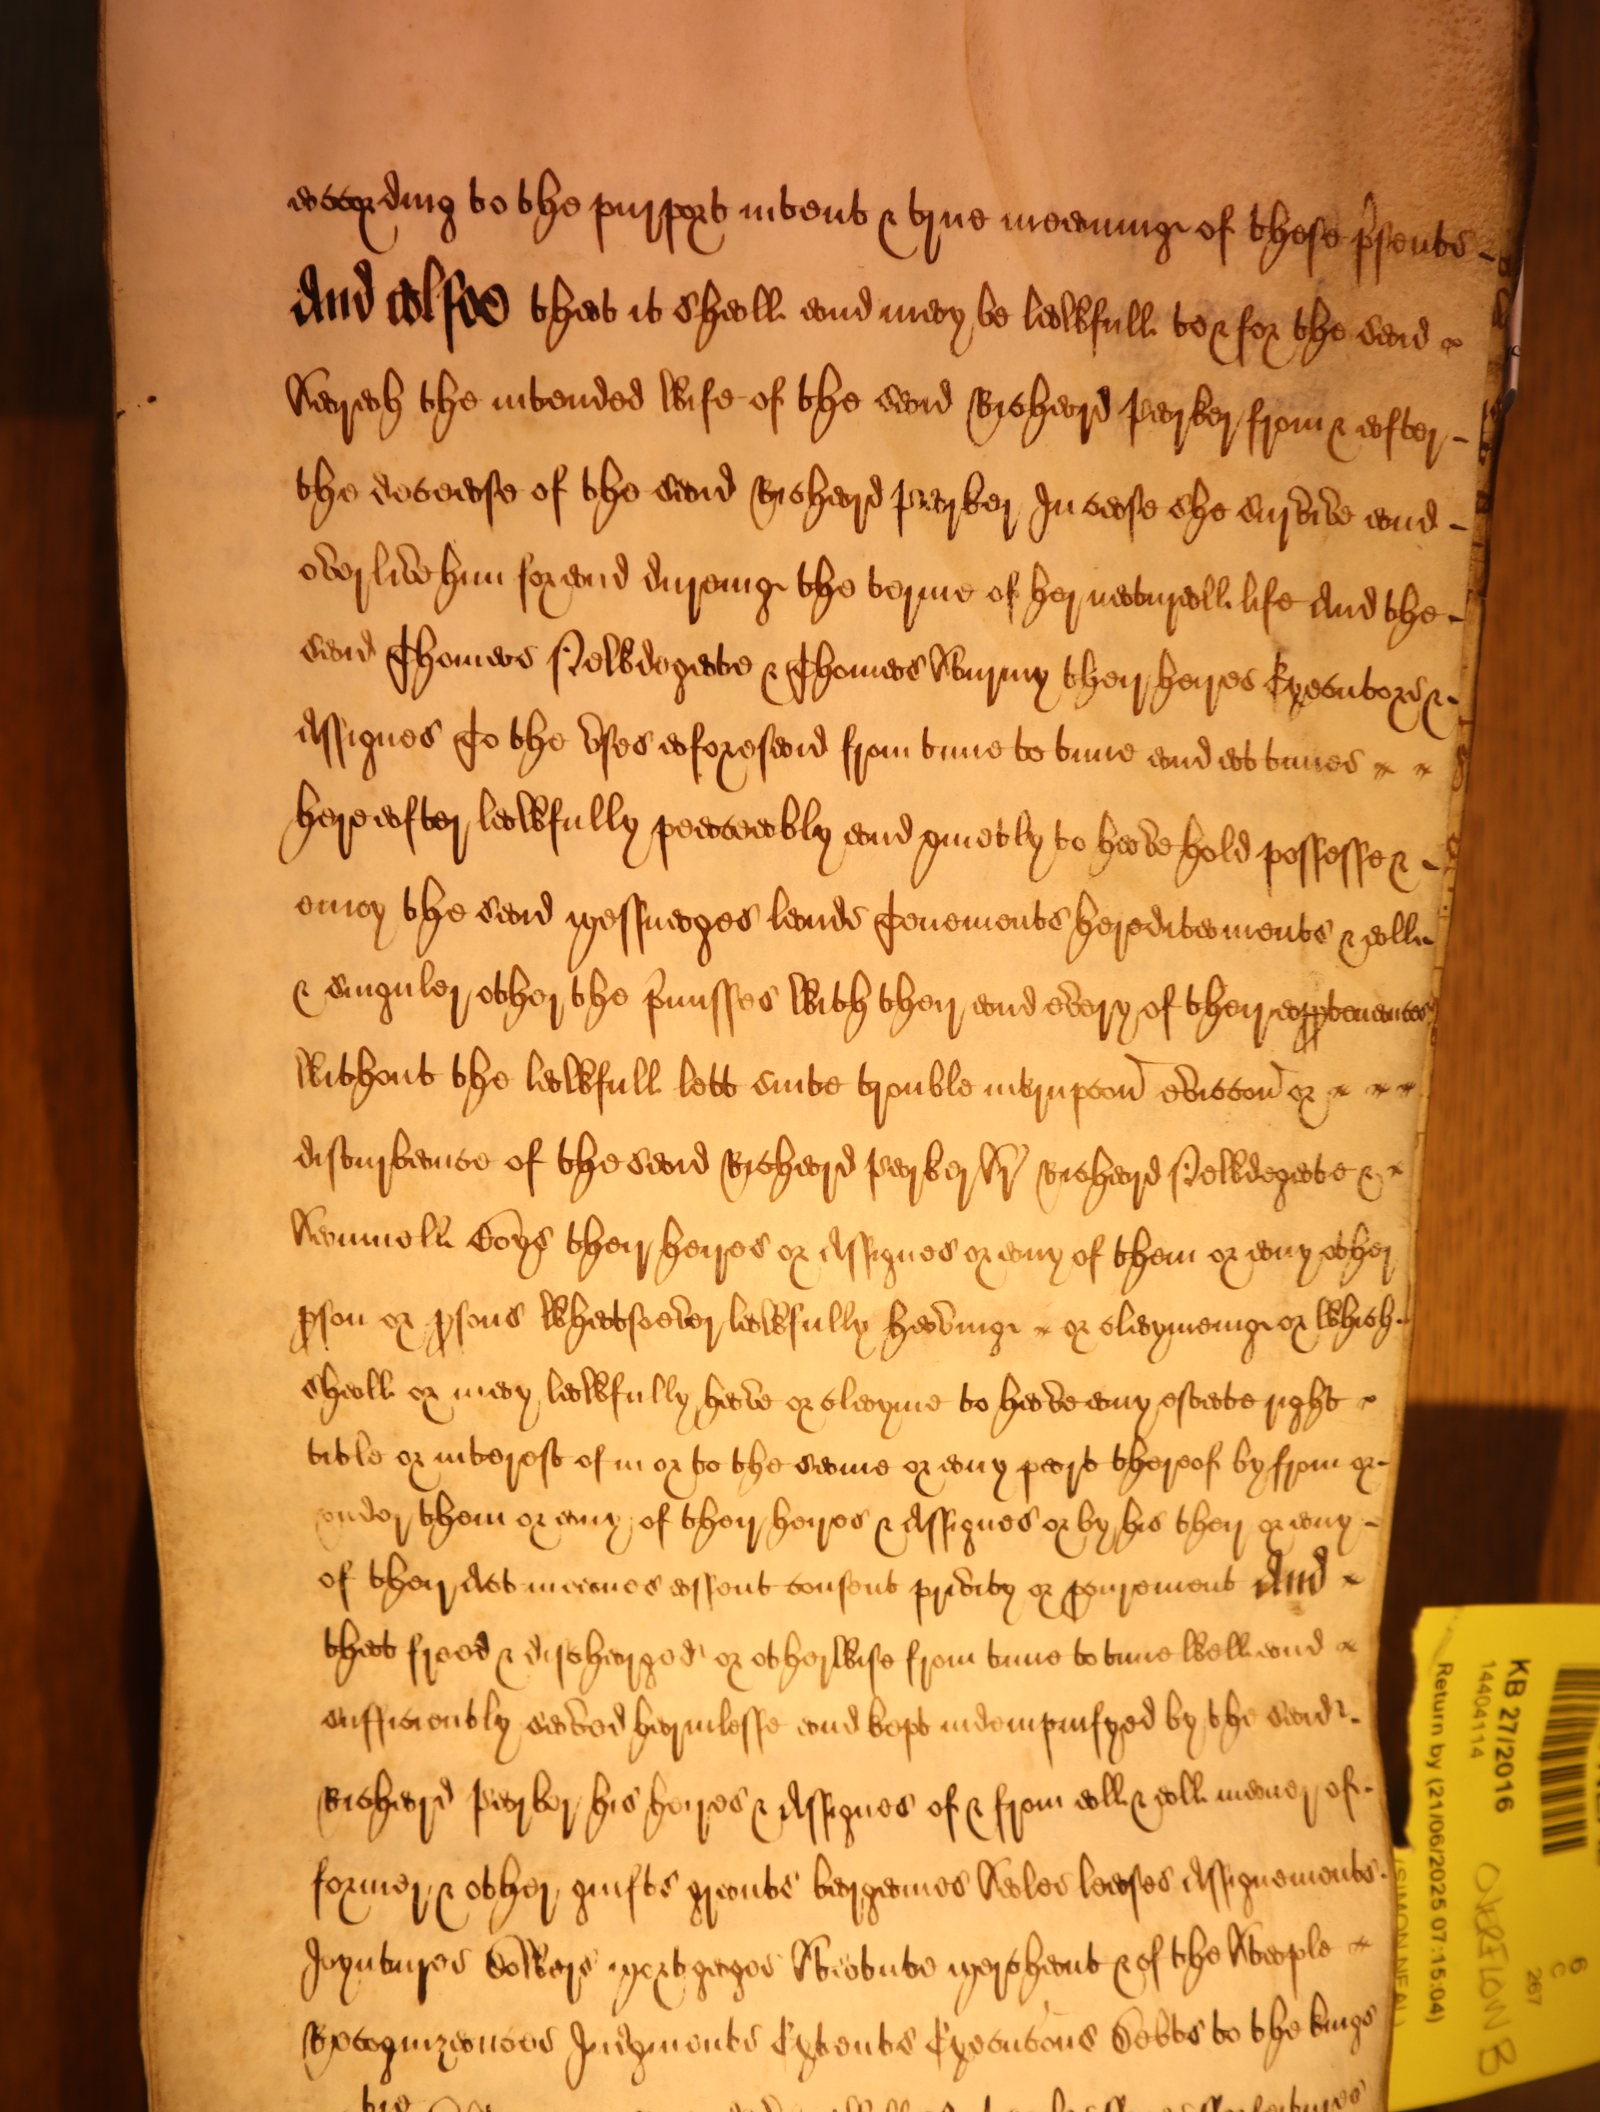 according to the purport intent & true meaninge of these p'sents -
And alsoe that it shall and may be lawfull to & for the said
Sarah the intended wife of the said Richard Parker from & after -
the decease of the said Richard Parker In case she survive and -
overlive him for and dureing the terme of her naturall life And the -
said Thomas Newdegate & Thomas Sturmy their heires Executors &
Assignes To the uses aforesaid from time to time and att times
hereafter lawfully peaceably and quietly to have hold possesse & -
enioy the said Messuages lands Tenements hereditaments & all
& singuler other the p'misses with their and every of their apptenances
without the lawfull lett suite trouble interupcon eviccon or
disturbance of the said Richard Parker Sr Richard Newdegate &
their heires or Assignes or any of them or any other
pson or psons whatsoever lawfully haveing or claymeing or which -
shall or may lawfully have or clayme to have any estate right
title or interest of in or to the same or any part thereof by from or -
under them or any of their heires & Assignes or by his their or any -
of their Act meanes assent consent privity or pcurement And
that freed & discharged or otherwise from time to time well and
sufficiently saved harmlesse and kept indempnifyed by the said -
Richard Parker his heires & Assignes of & from all & all maner of -
former & other guifts grants bargaines Sales leases Assignements -
Joyntures Dowers Mortgages Statute Merchant & of the Staple
Recognizances Judgments Extents Executons Debts to the kings
KB 27/2016
14404114
Return by (21/06/2025 07:15:04)
(SIMON NEAL)
OVERFLOW B
6
C
267